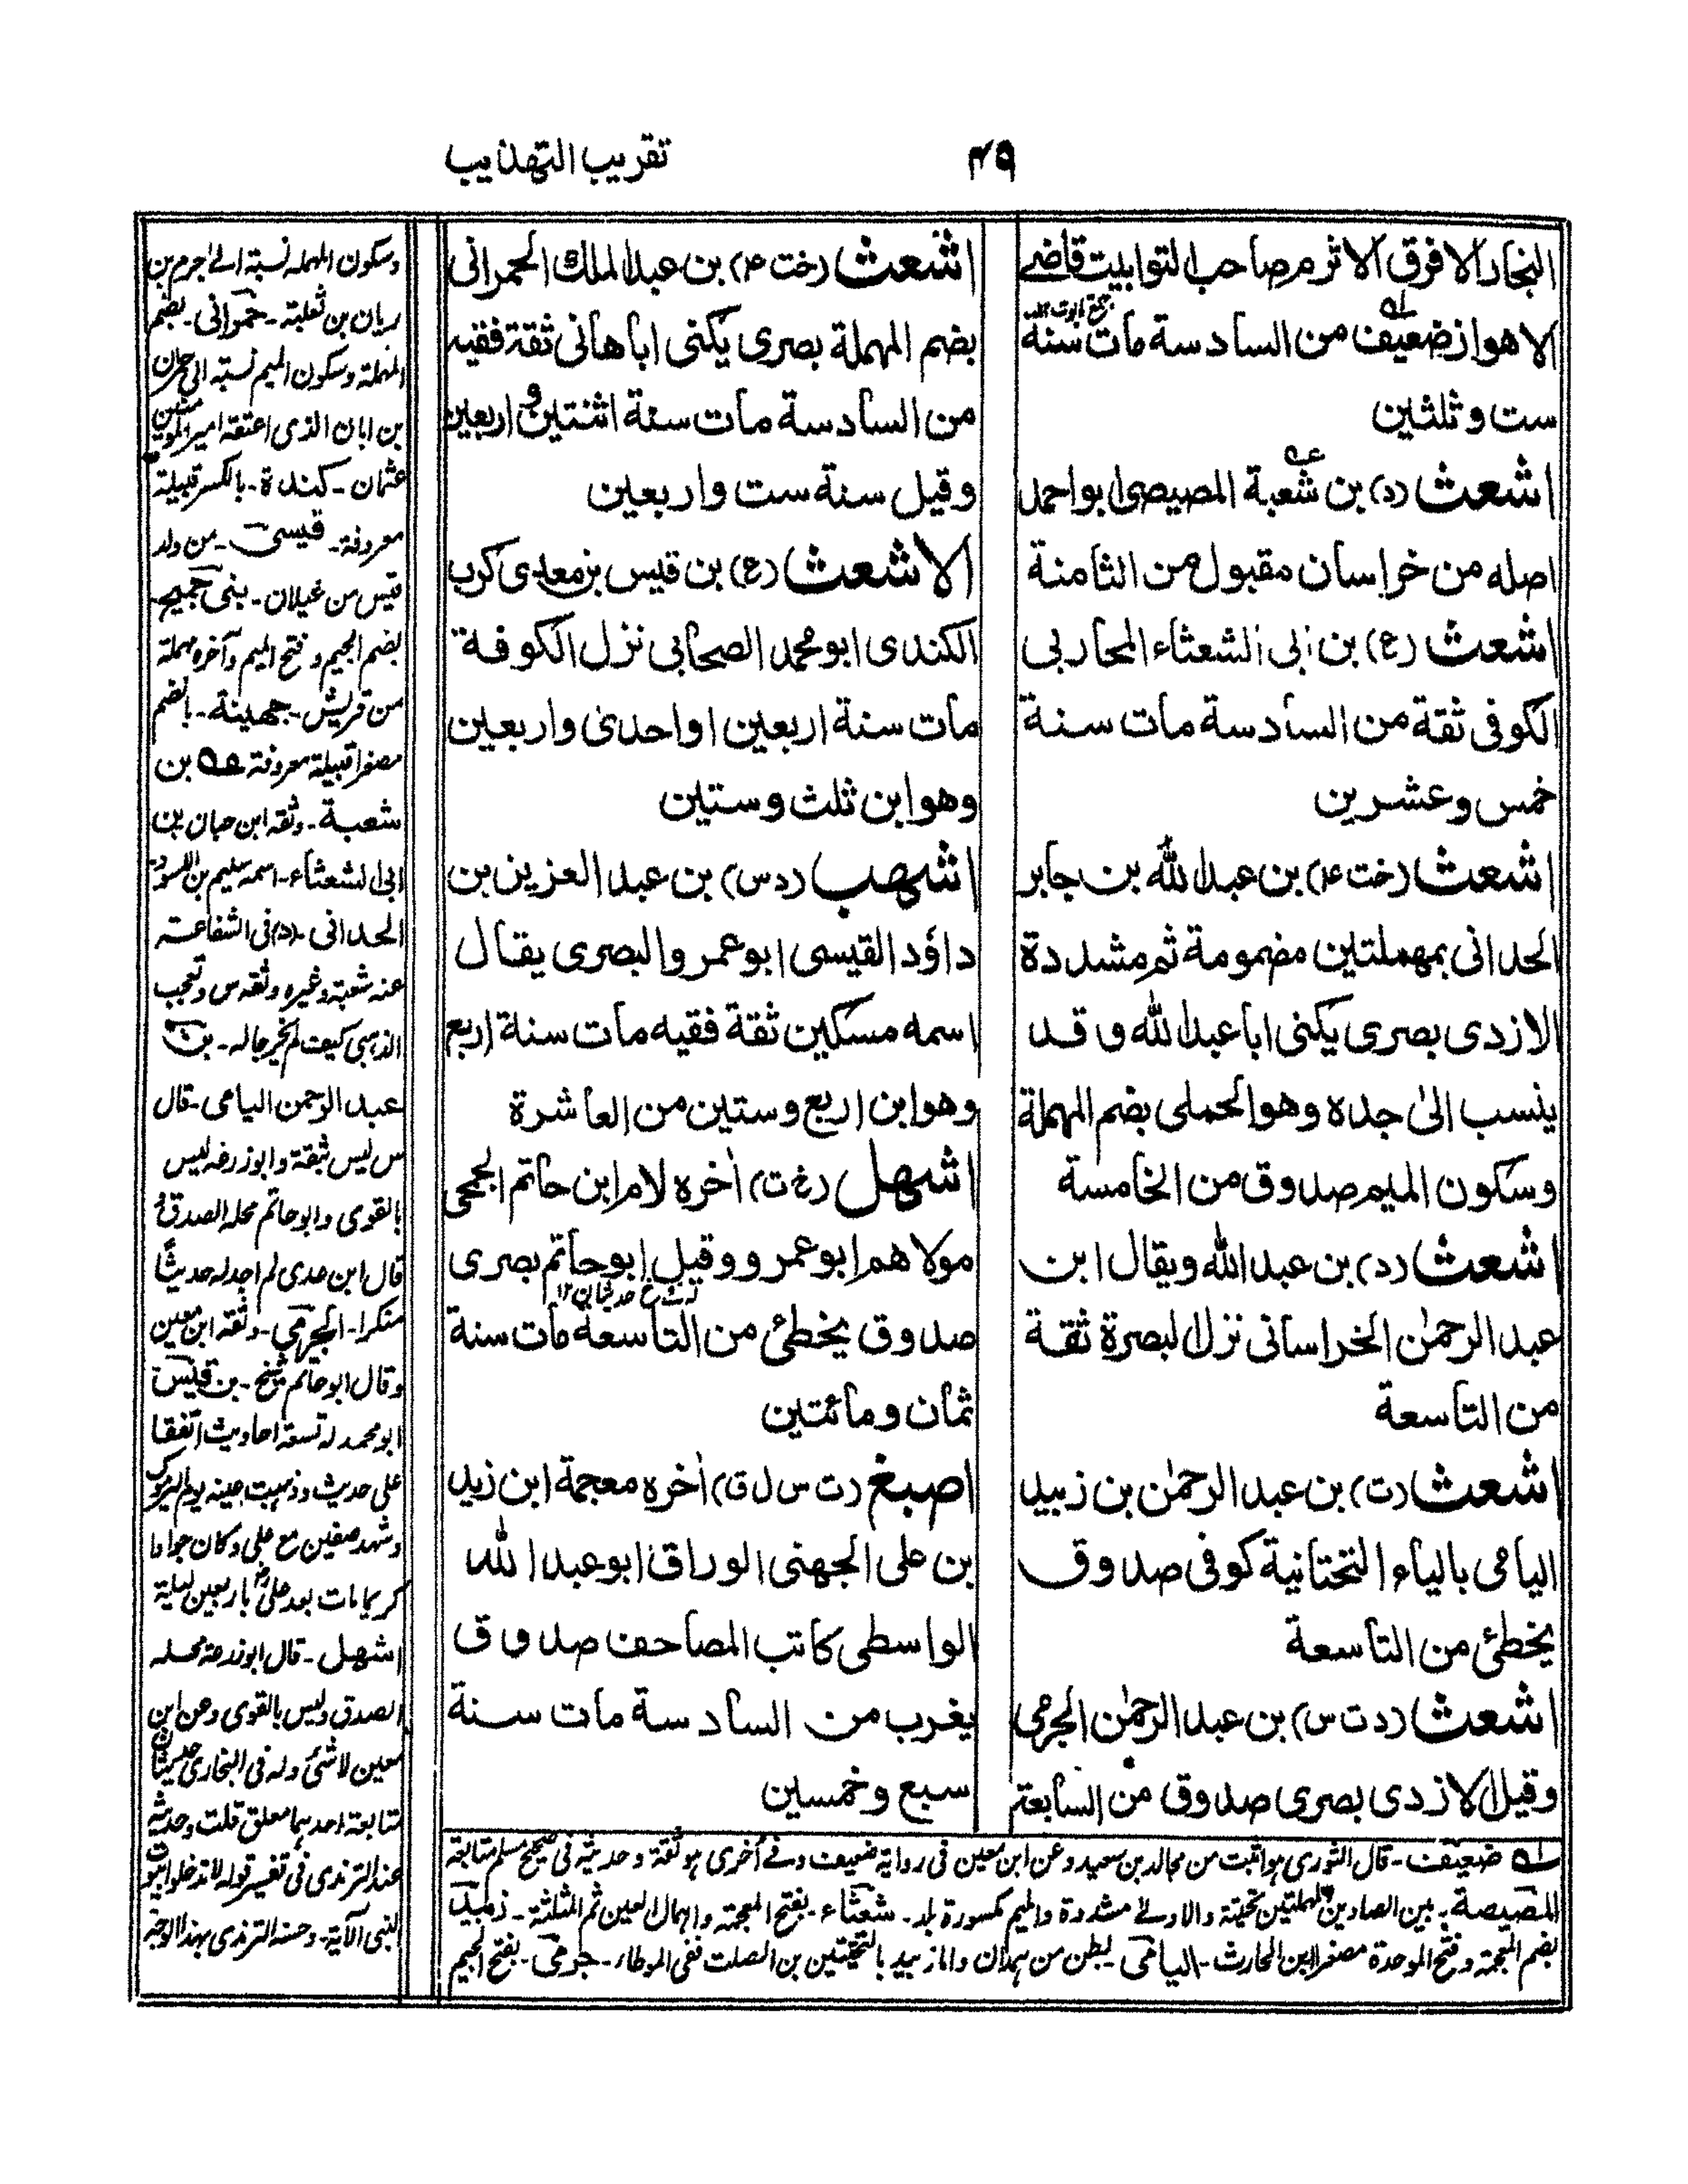 تقريب التهذيب
٤٩
النجار الافرق الاثرم صاحب التوابيت قاضى
الاهواز ضعيف من السادسة مات سنة
ست وثلثين
اشعث (د) بن شعبة المصيصى ابو احمد
اصله من خراسان مقبول من الثامنة
اشعث (ع) بن ابى الشعثاء المحاربى
الكوفى ثقة من السادسة مات سنة
خمس وعشرين
اشعث (خت ٤) بن عبد الله بن جابر
الحدانى بمهملتين مضمومة ثم مشددة
الازدى بصرى يكنى ابا عبد الله وقد
ينسب الى جده وهو الحملى بضم المهملة
وسكون الميم صدوق من الخامسة
اشعث (د) بن عبد الله ويقال ابن
عبد الرحمٰن الخراسانى نزل البصرة ثقة
من التاسعة
اشعث (ت) بن عبد الرحمٰن بن زبيد
اليامى بالياء التختانية كوفى صدوق
يخطئ من التاسعة
اشعث (د ت س) بن عبد الرحمٰن الجرمى
وقيل الازدى بصرى صدوق من السابعة
اشعث (خت ٤) بن عبد الملك الحمرانى
بضم المهملة بصرى يكنى ابا هانى ثقة فقيه
من السادسة مات سنة اثنتين واربعين
وقيل سنة ست واربعين
الاشعث (ع) بن قيس بن معدى كرب
الكندى ابو محمد الصحابى نزل الكوفة
مات سنة اربعين او احدى واربعين
وهو ابن ثلث وستين
اشهب (د س) بن عبد العزيز بن
داؤد القيسى ابو عمرو البصرى يقال
اسمه مسكين ثقة فقيه مات سنة اربع
وهو ابن اربع وستين من العاشرة
اشهل (خ ت) اٰخره لام ابن حاتم الجمحى
مولاهم ابو عمرو وقيل ابو حاتم بصرى
صدوق يخطئ من التاسعة مات سنة
ثمان ومائتين
اصبغ (ت س ل ق) اٰخره معجمة ابن زيد
بن على الجهنى الوراق ابو عبد الله
الواسطى كاتب المصاحف صدوق
يغرب من السادسة مات سنة
سبع وخمسين
وسكون المهمله نسبة الے جرم بن
ريان بن ثعلبة - حمرانى - بضم
المهملة وسكون الميم نسبة الى حمران
بن ابان الذى اعتقه امير المومنين
عثمان - كندة - بالكسر قبيلة
معروفة - قيسى - من ولد
قيس من غيلان - بنى جميح -
بضم الجيم وفتح الميم وآخره مهملة
من قريش - جهينة - بالضم
مصغرا قبيلة معروفة بن
شعبة - وثقه ابن حبان بن
ابى الشعثاء - اسمه سليم بن الاسود
الحدانى - (د) فى الشفاعة
عنه شعبة وغيره وثقه س وتعجب
الذهبى كيف لم يخرجا له - بن
عبد الرحمن اليامى - قال
س ليس بثقة وابو زرعه ليس
بالقوى وابو حاتم محله الصدق و
قال ابن عدى لم اجد له حديثًا
منكرا - الجرمى - وثقه ابن معين
وقال ابو حاتم شيخ - بن قيس
ابو محمد له تسعة احاديث اتفقا
على حديث وذهبت عينه يوم اليرموك
وشهد صفين مع على وكان جوادا
كريما مات بعد على باربعين ليلة
اشهل - قال ابو زرعة محله
الصدق وليس بالقوى وعن ابن
معين لا شئ وله فى البخارى حديثان
متابعة احدهما معلق قلت وحديثه
عند الترمذى فى تفسير قوله لا تدخلوا بيوت
النبى الآية - وحسنه الترمذى بهذا الوجه
له ضعيف - قال الثورى هو اثبت من مجالد بن سعيد وعن ابن معين فى رواية ضعيف وفے أخرى هو ثقة وحديثه فى صحيح مسلم متابعة
المصيصة - بين الصادين المهملتين تحتية والاولے مشددة والميم مكسورة بلد - شعثاء - بفتح المعجمة واهمال العين ثم المثلثة - زبيد
بضم المعجمة وفتح الموحدة مصغرا ابن الحارث - اليامى - لبطن من همدان واما زييد بالتحتيتين بن الصلت ففى الموطاء - جرمى - بفتح الجيم